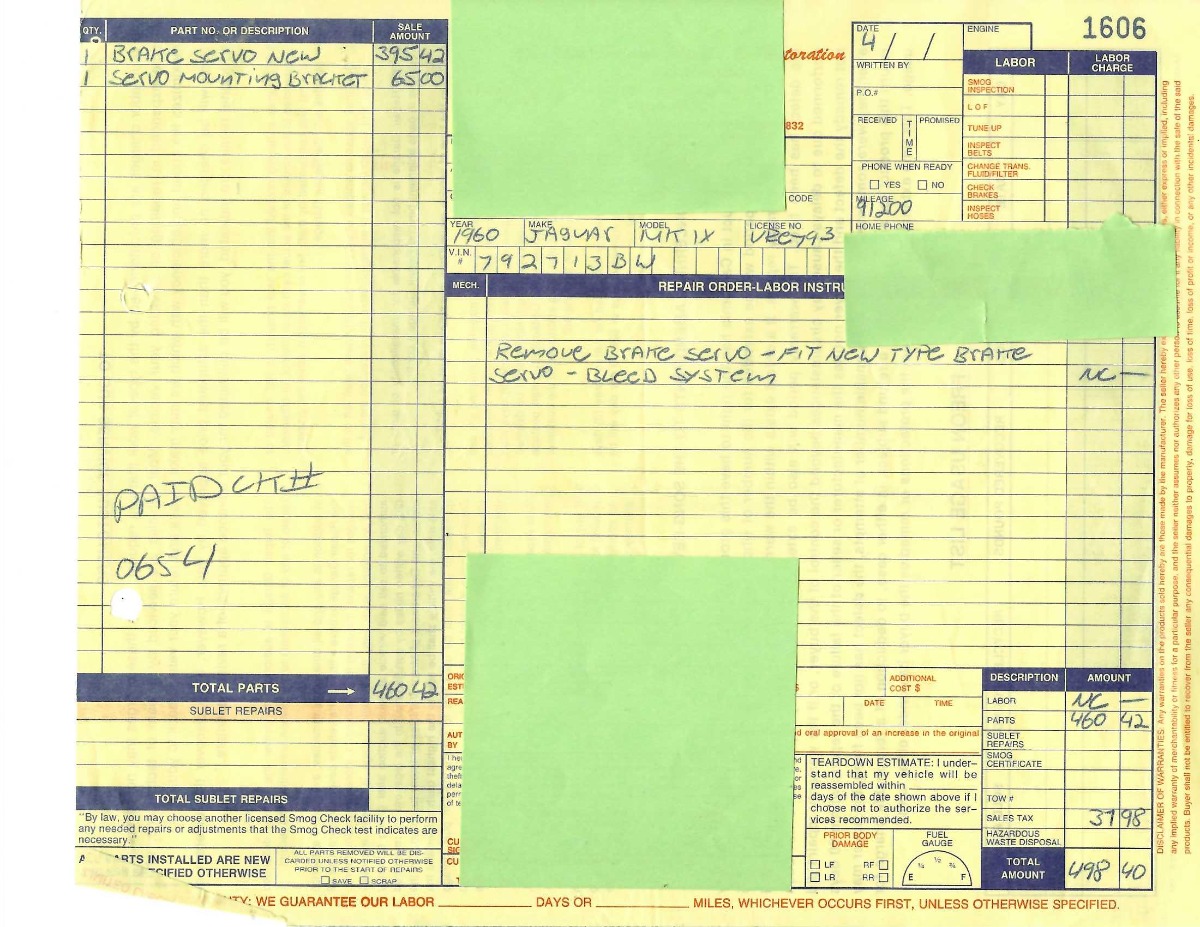 1606
QTY. PART NO. OR DESCRIPTION SALE AMOUNT
1 BRAKE SERVO NEW 395 42
1 SERVO MOUNTING BRACKET 65 00
PAID CK#
0654
TOTAL PARTS → 460 42
SUBLET REPAIRS
TOTAL SUBLET REPAIRS
"By law, you may choose another licensed Smog Check facility to perform
any needed repairs or adjustments that the Smog Check test indicates are
necessary."
PARTS INSTALLED ARE NEW
OTHERWISE
ALL PARTS REMOVED WILL BE DIS-
CARDED UNLESS NOTIFIED OTHERWISE
PRIOR TO THE START OF REPAIRS
☐ SAVE ☐ SCRAP
toration
832
CODE
DATE 4/ /
WRITTEN BY
P.O.#
RECEIVED TIME PROMISED
PHONE WHEN READY
☐ YES ☐ NO
MILEAGE 91200
HOME PHONE
ENGINE
LABOR LABOR CHARGE
SMOG INSPECTION
L O F
TUNE-UP
INSPECT BELTS
CHANGE TRANS. FLUID/FILTER
CHECK BRAKES
INSPECT HOSES
YEAR 1960 MAKE JAGUAR MODEL MK IX LICENSE NO.
V.I.N. # 792713BW
MECH. REPAIR ORDER-LABOR INSTRU
REMOVE BRAKE SERVO - FIT NEW TYPE BRAKE
SERVO - BLEED SYSTEM NC —
ADDITIONAL COST $
DATE TIME
oral approval of an increase in the original
TEARDOWN ESTIMATE: I under-
stand that my vehicle will be
reassembled within
days of the date shown above if I
choose not to authorize the ser-
vices recommended.
PRIOR BODY DAMAGE
☐ LF RF ☐
☐ LR RR ☐
FUEL GAUGE
E ¼ ½ ¾ F
DESCRIPTION AMOUNT
LABOR NC —
PARTS 460 42
SUBLET REPAIRS
SMOG CERTIFICATE
TOW #
SALES TAX 37 98
HAZARDOUS WASTE DISPOSAL
TOTAL AMOUNT 498 40
WE GUARANTEE OUR LABOR DAYS OR MILES, WHICHEVER OCCURS FIRST, UNLESS OTHERWISE SPECIFIED.
DISCLAIMER OF WARRANTIES. Any warranties on the products sold hereby are those made by the manufacturer. The seller hereby either express or implied, including
any implied warranty of merchantability or fitness for a particular purpose, and the seller neither assumes nor authorizes any other person to assume for it any liability in connection with the sale of the said
products. Buyer shall not be entitled to recover from the seller any consequential damages, damages to property, damage for loss of use, loss of time, loss of profit or income, or any other incidental damages.